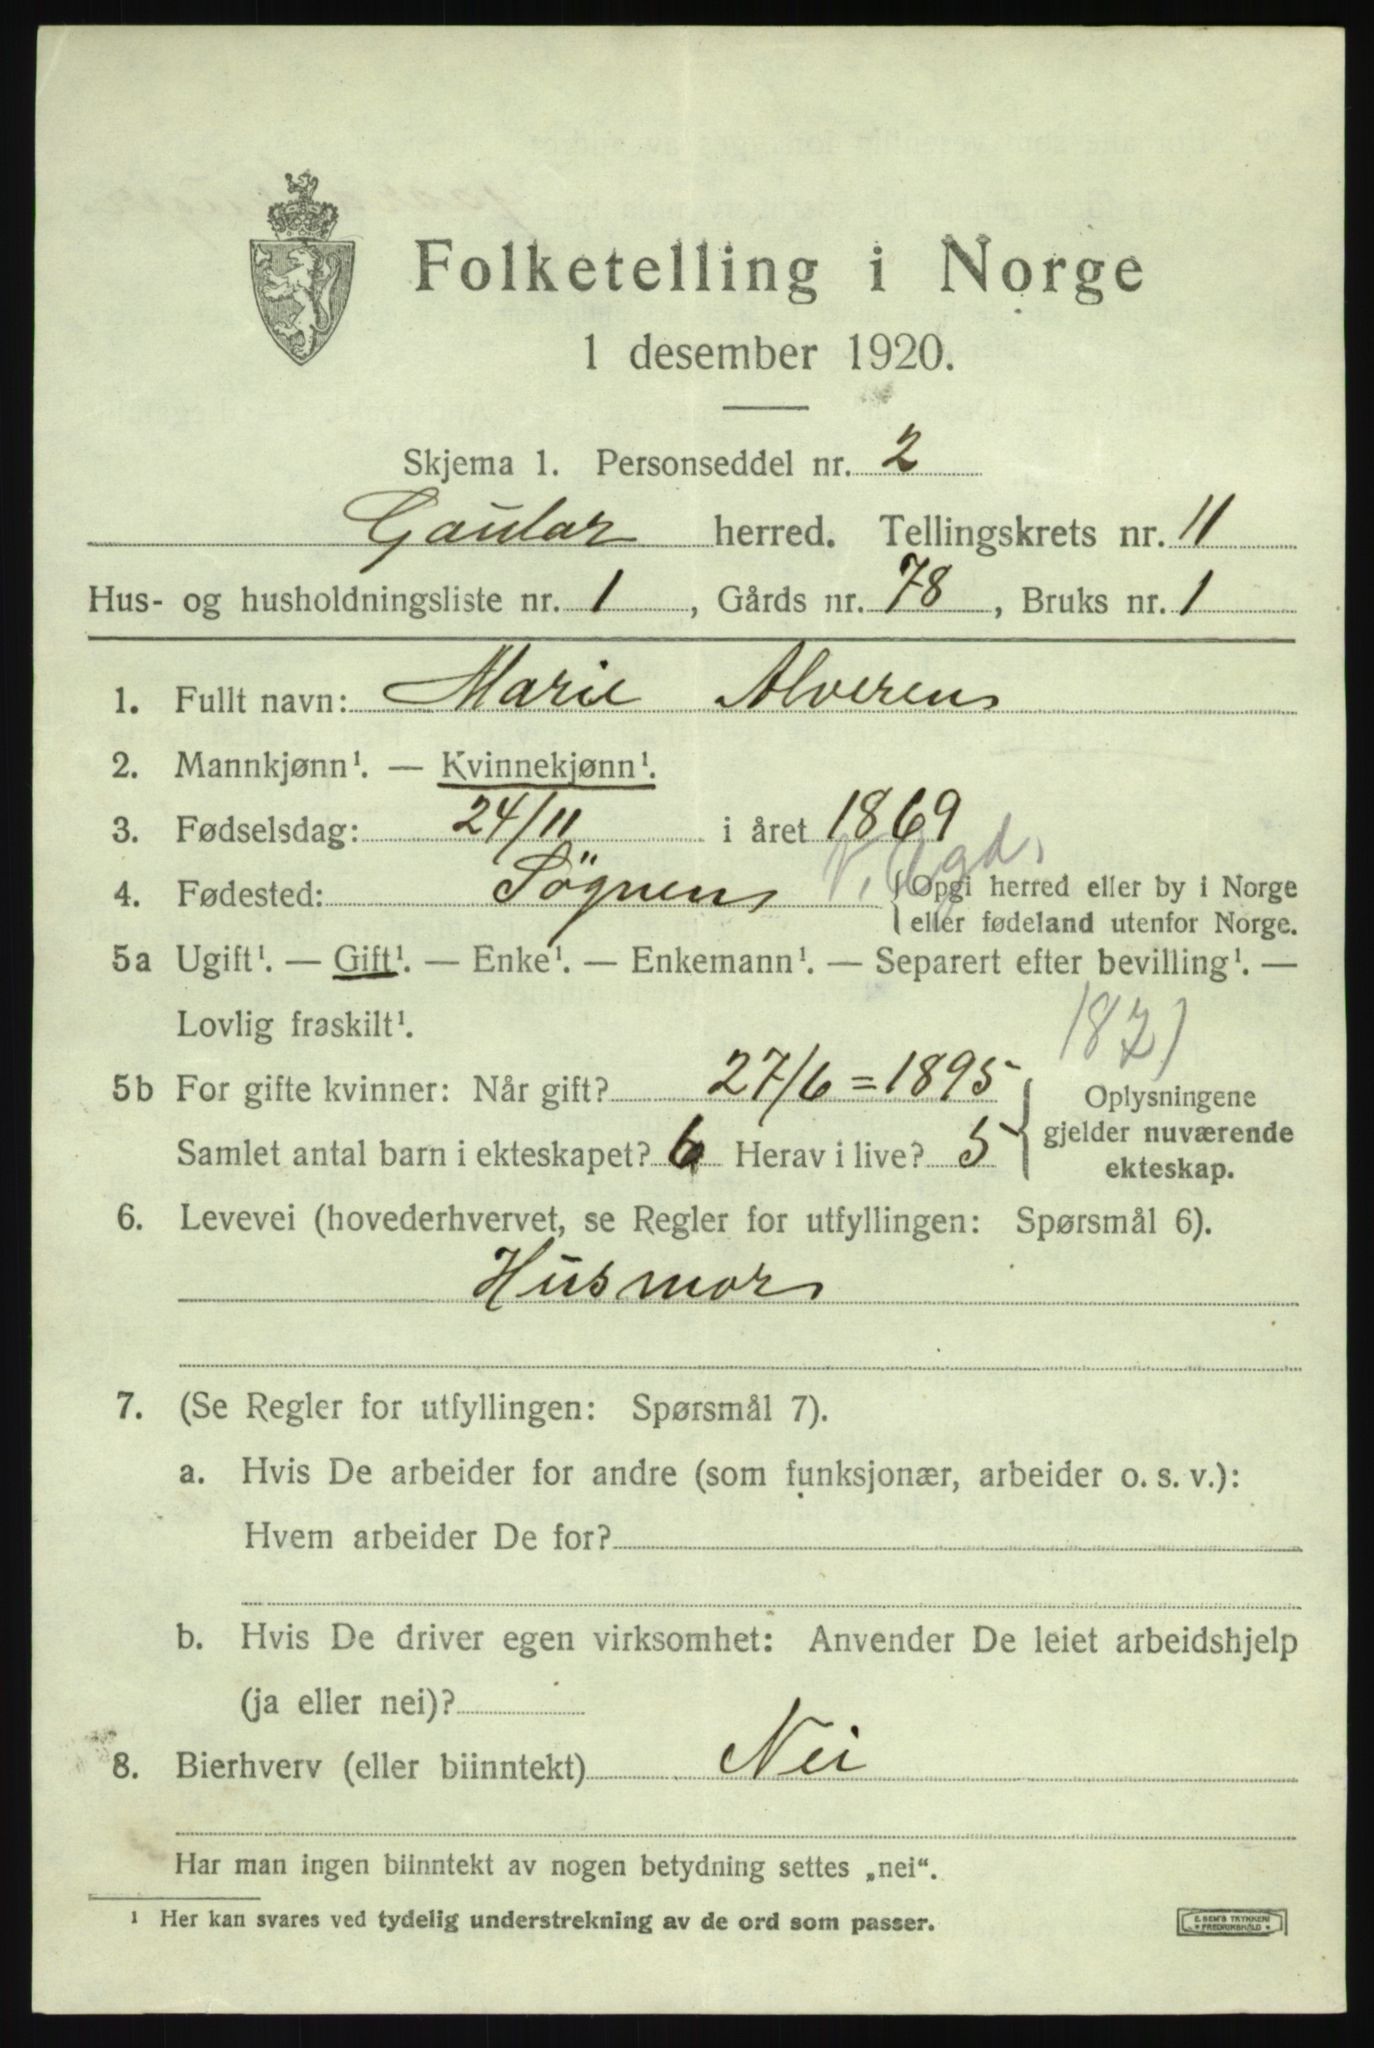 Folketelling i Norge
1 desember 1920.
Skjema 1. Personseddel nr. 2
Gaular herred. Tellingskrets nr. 11
Hus- og husholdningsliste nr. 1, Gårds nr. 78, Bruks nr. 1
1. Fullt navn: Marie Alveren
2. Mannkjønn¹. — Kvinnekjønn¹.
3. Fødselsdag: 24/11 i året 1869
4. Fødested: Sögnen V. Agd. {Opgi herred eller by i Norge
eller fødeland utenfor Norge.
5a Ugift¹. — Gift¹. — Enke¹. — Enkemann¹. — Separert efter bevilling¹. —
Lovlig fraskilt¹.
5b For gifte kvinner: Når gift? 27/6 = 1895
Samlet antal barn i ekteskapet? 6 Herav i live? 5
Oplysningene
gjelder nuværende
ekteskap.
6. Levevei (hovederhvervet, se Regler for utfyllingen: Spørsmål 6).
Husmor
7. (Se Regler for utfyllingen: Spørsmål 7).
a. Hvis De arbeider for andre (som funksjonær, arbeider o. s. v.):
Hvem arbeider De for?
b. Hvis De driver egen virksomhet: Anvender De leiet arbeidshjelp
(ja eller nei)?
8. Bierhverv (eller biinntekt) Nei
Har man ingen biinntekt av nogen betydning settes „nei“.
¹ Her kan svares ved tydelig understrekning av de ord som passer.
E. SEM'S TRYKKERI
FREDRIKSHALD